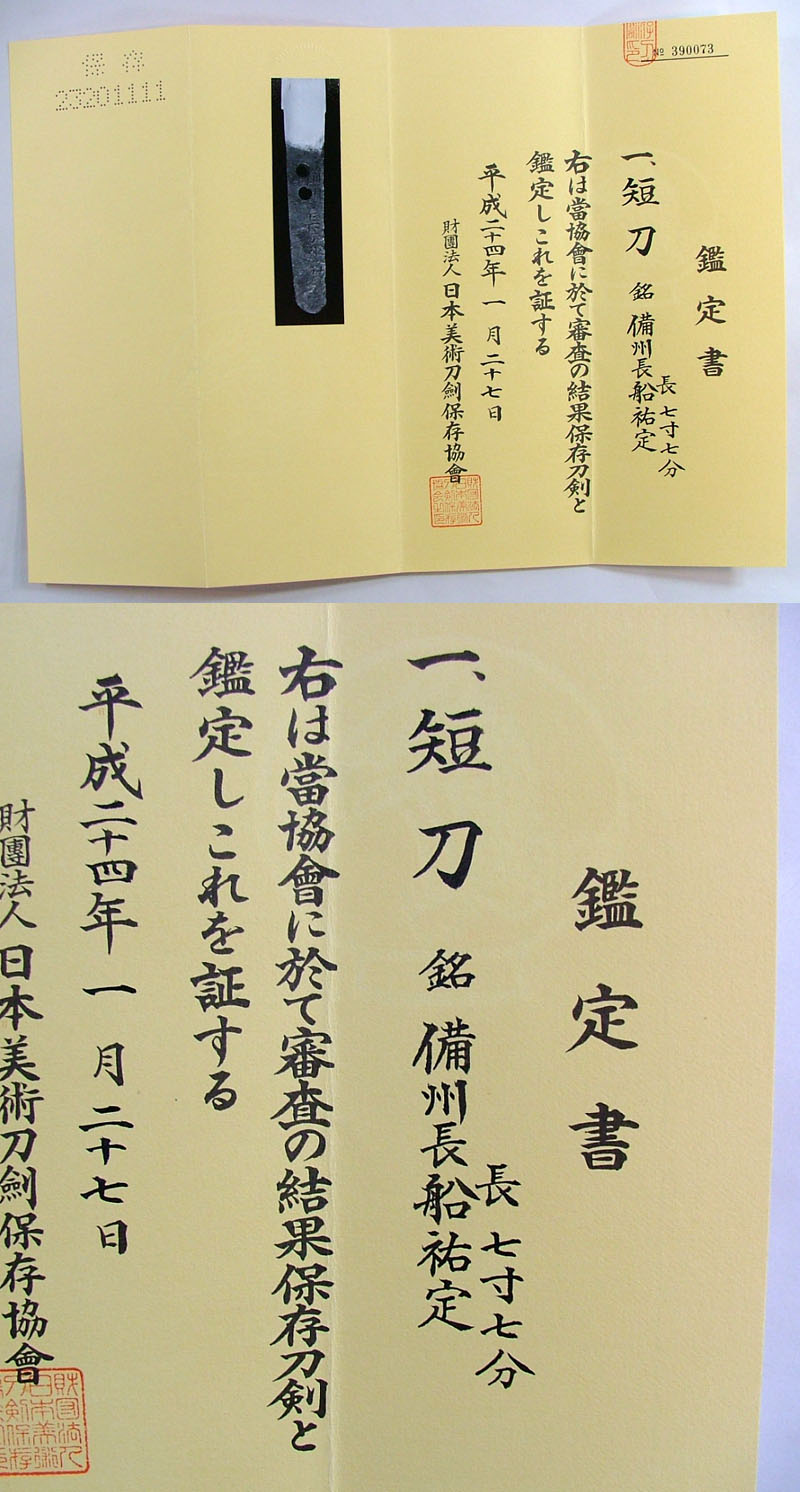 保存
23201111
№ 390073
鑑定書
一、短刀 銘 備州長船祐定
長 七寸七分
右は當協會に於て審査の結果保存刀剣と
鑑定しこれを証する
平成二十四年 一月 二十七日
財團法人 日本美術刀劍保存協會
鑑定書
一、短刀 銘 備州長船祐定
長 七寸七分
右は當協會に於て審査の結果保存刀剣と
鑑定しこれを証する
平成二十四年 一月 二十七日
財團法人 日本美術刀劍保存協會